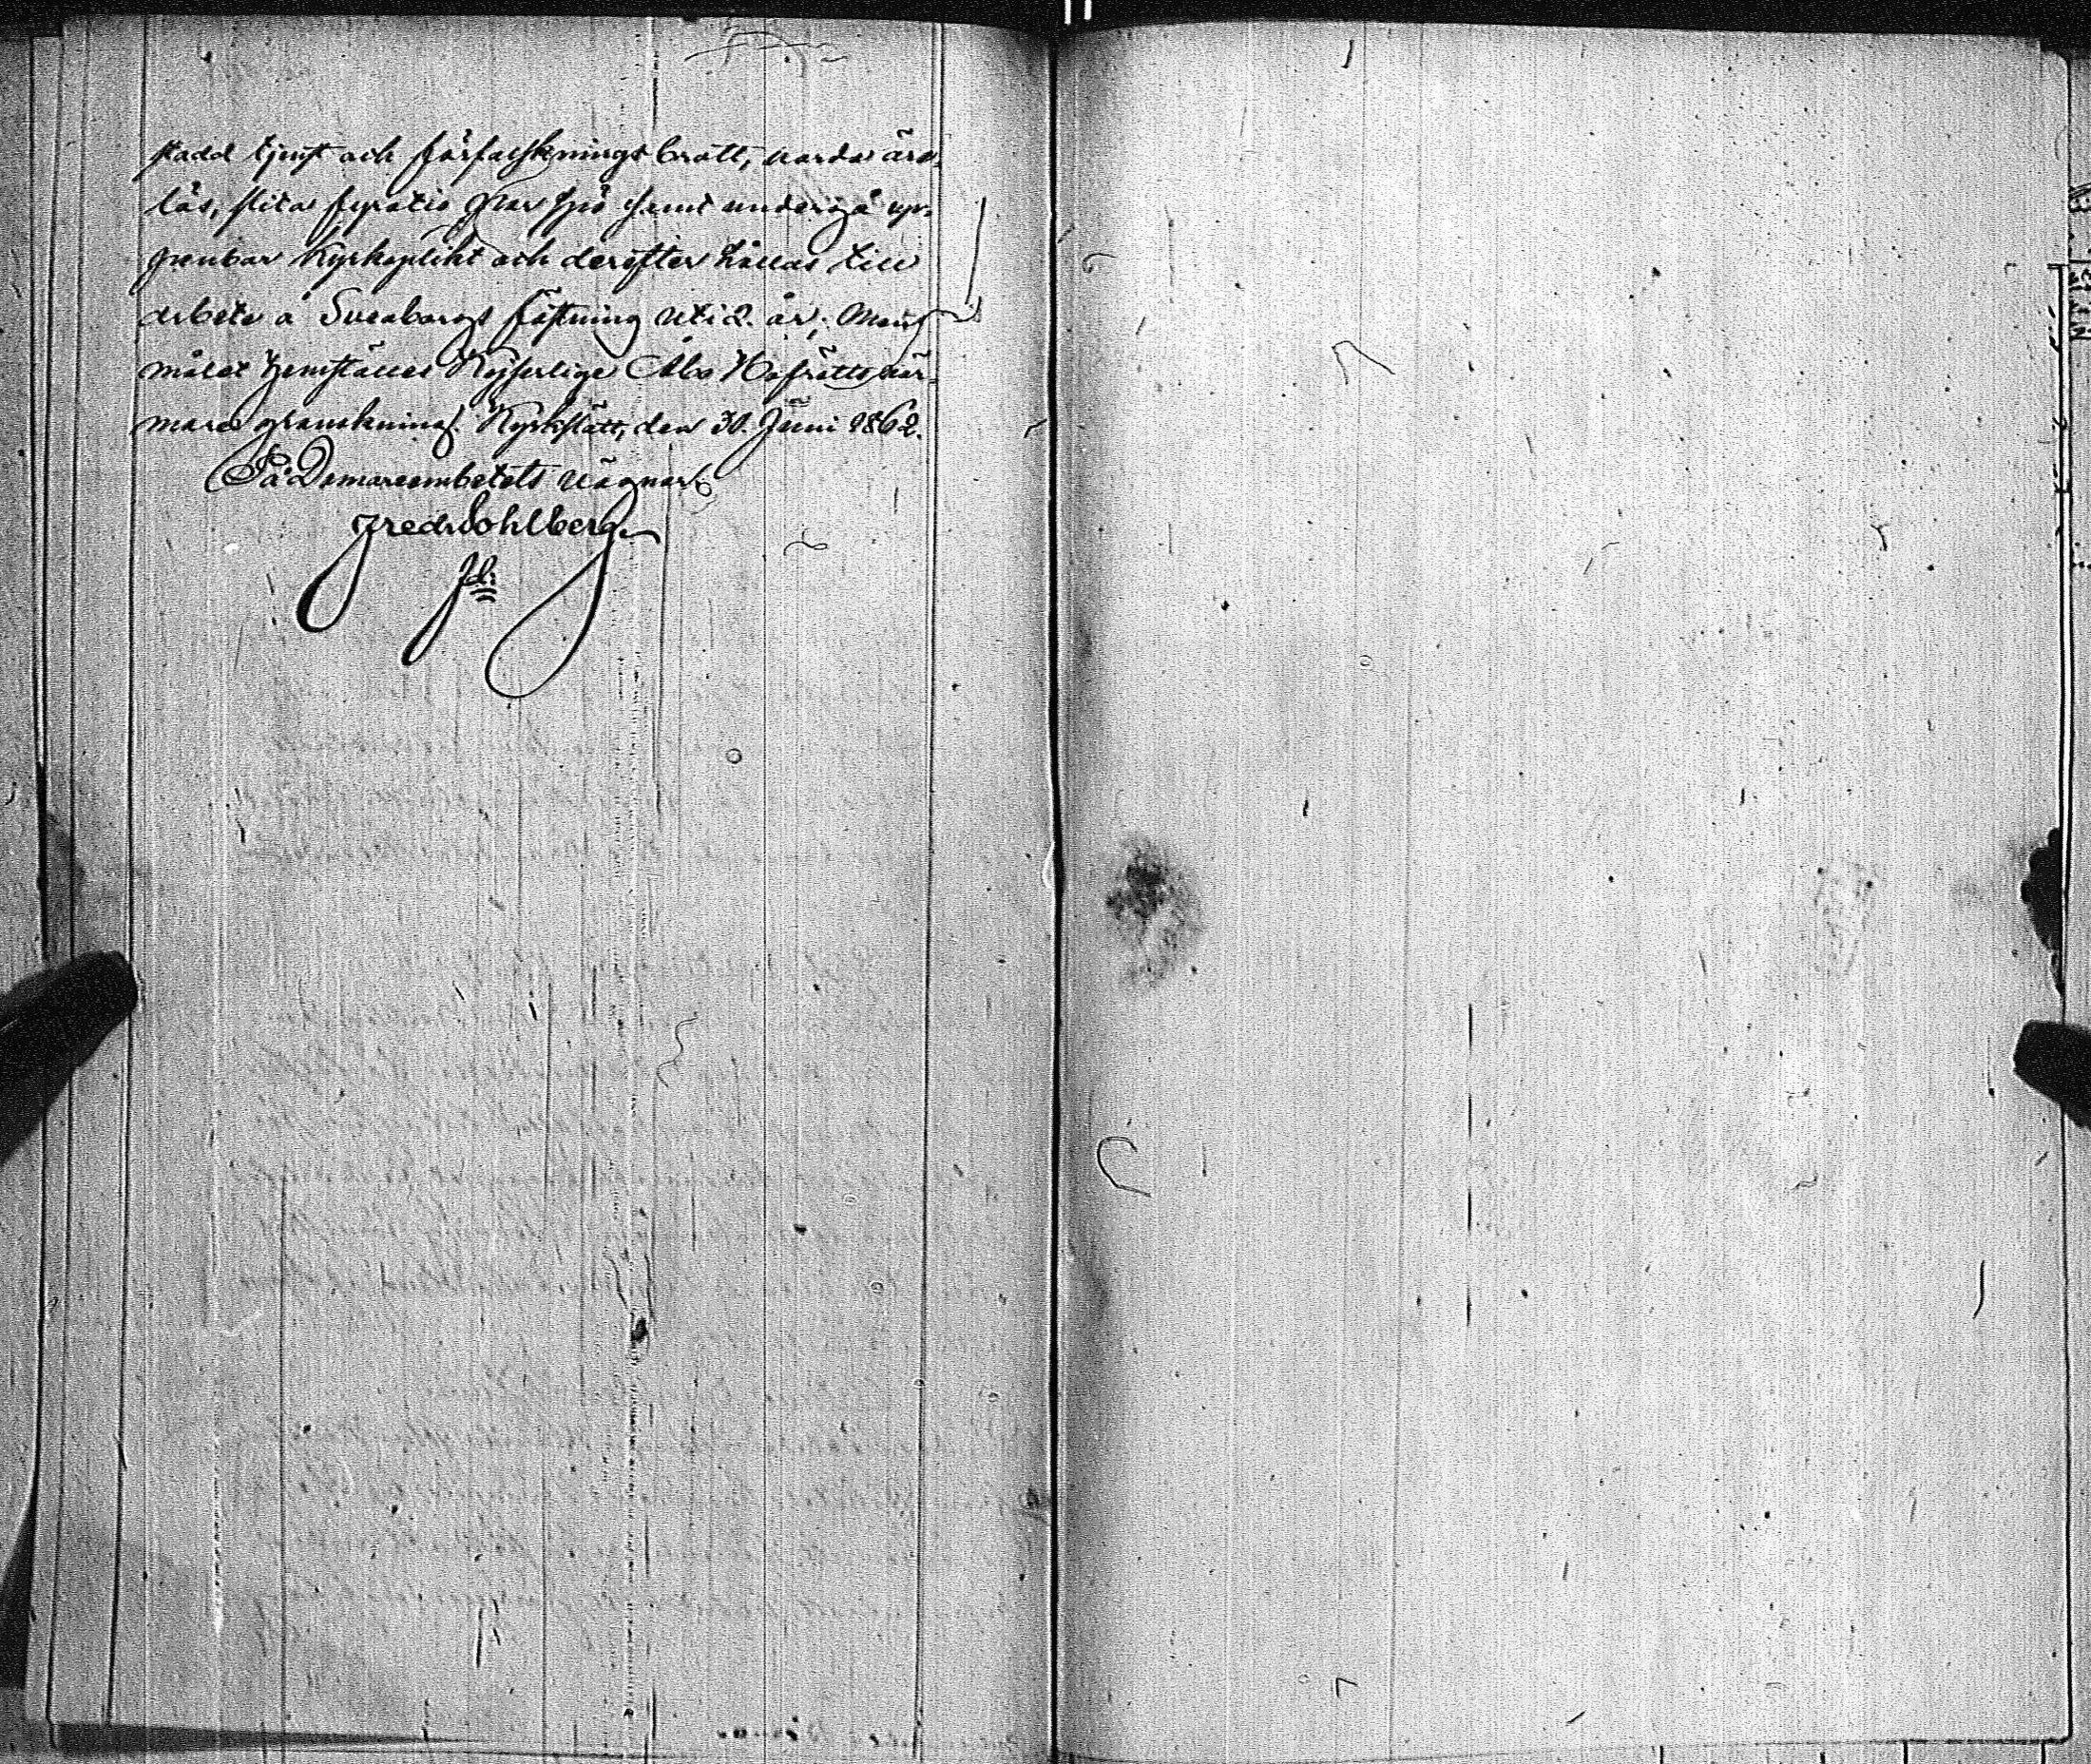 stadd tjenst och förfalskningsbrott, varda äre-
lös, slita fyratio par spö samt undergå up-
penbar kyrkoplikt och derefter hållas till
arbete å Sveaborgs fästning uti 2. år;
målet hemställes Kejserlige Åbo Hofrätts när-
mare granskning. Kyrkslätt, den 30. Juni 1862.
På Domareembetets vägnar
Fredr Sohlberg